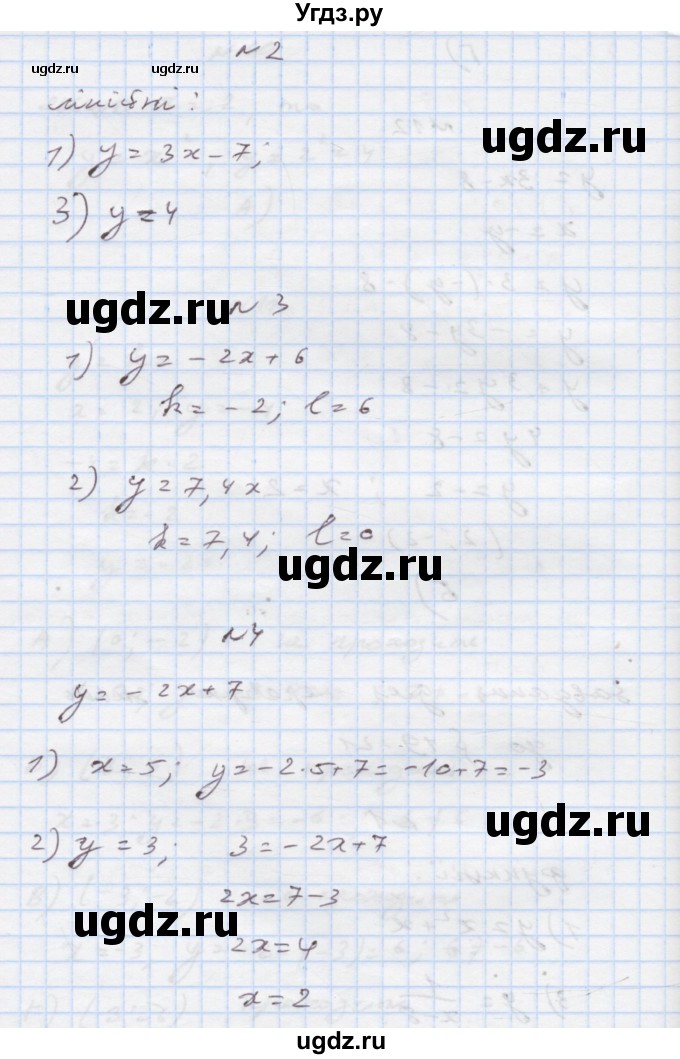 Угдз.ру
№2
ugdz.ru ugdz.ru
лінійні:
1) y = 3x - 7;
ugdz.ru
3) y = 4
ugdz.ru
№3
1) y = -2x + 6
k = -2; l = 6
2) y = 7,4x
k = 7,4; l = 0
ugdz.ru
№4
y = -2x + 7
1) x = 5; y = -2·5+7 = -10+7 = -3
ugdz.ru
2) y = 3; 3 = -2x + 7
2x = 7-3
ugdz.ru
2x = 4
x = 2
ugdz.ru